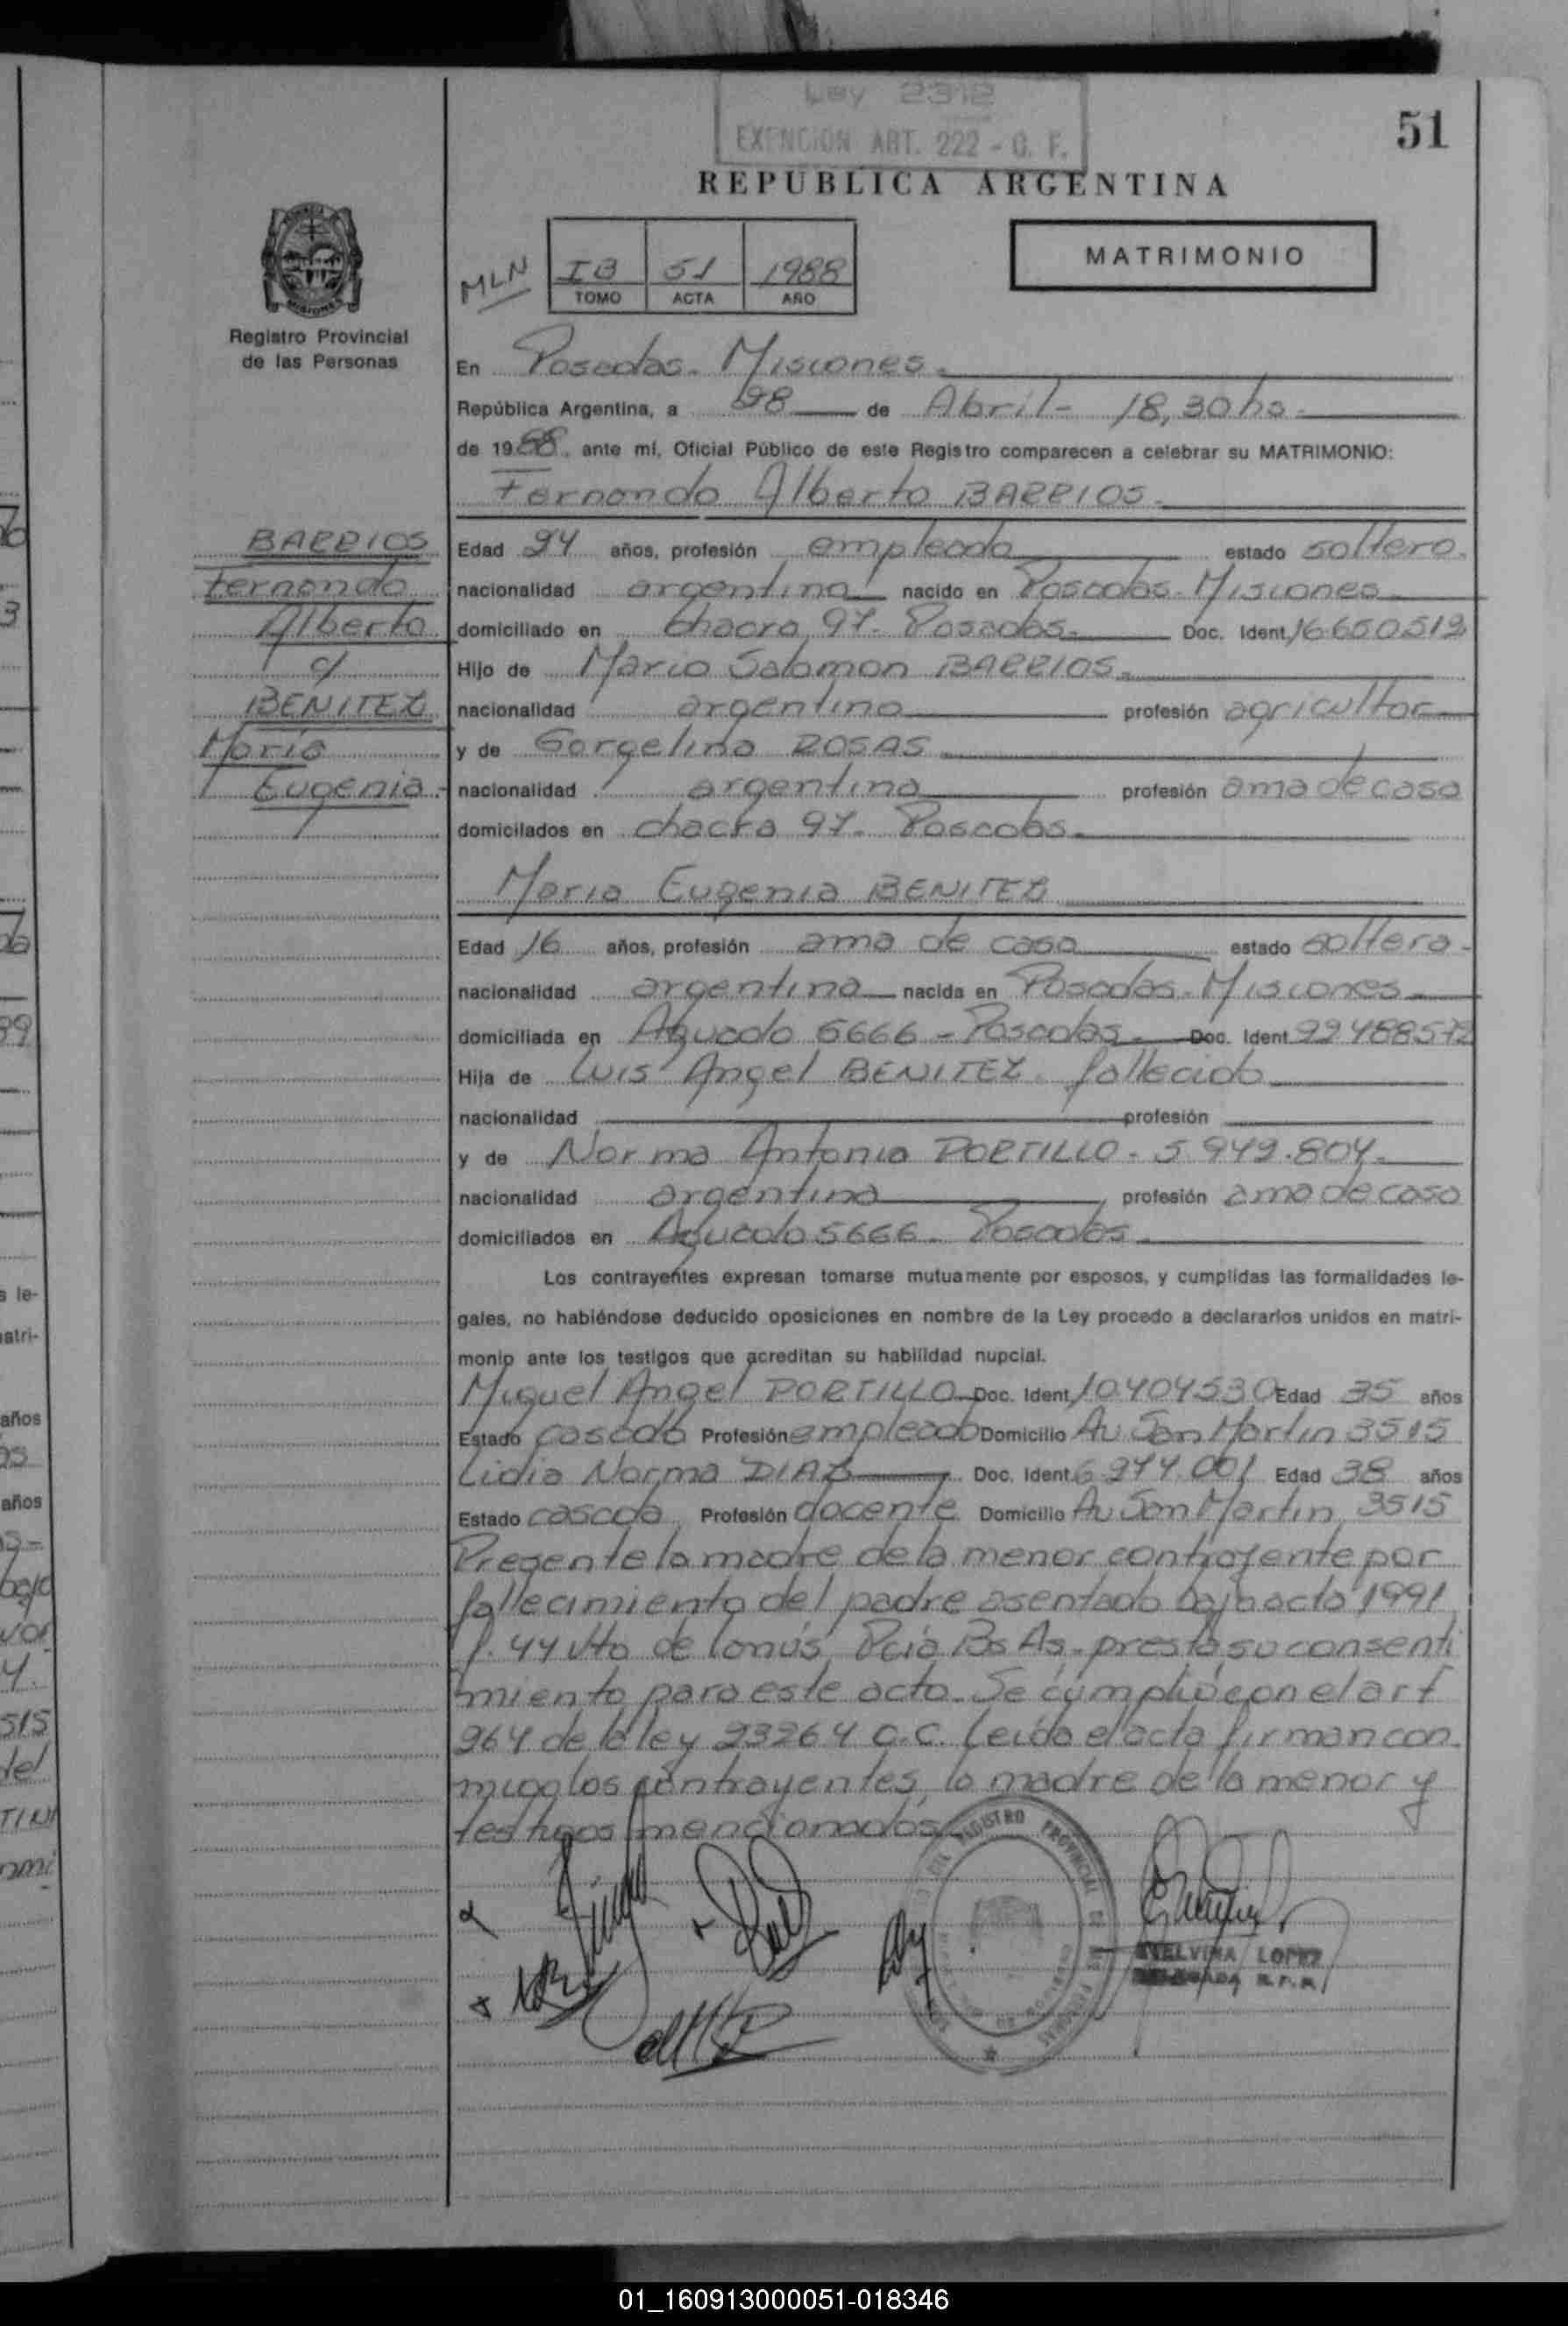 Ley 2312
EXENCION ART. 222 - C. F.
51
REPUBLICA ARGENTINA
MLN
IB 51 1988
TOMO ACTA AÑO
MATRIMONIO
Registro Provincial
de las Personas
En Posadas - Misiones.
República Argentina, a 28 de Abril - 18,30 hs.
de 1988, ante mí, Oficial Público de este Registro comparecen a celebrar su MATRIMONIO:
Fernando Alberto BARRIOS
BARRIOS
Fernando
Alberto
c/
BENITEZ
María
Eugenia.
Edad 24 años, profesión empleado estado soltero.
nacionalidad argentina nacido en Posadas - Misiones
domiciliado en chacra 97 - Posadas. Doc. Ident. 16650512
Hijo de Mario Salomon BARRIOS.
nacionalidad argentina profesión agricultor
y de Gorgelina ROSAS
nacionalidad argentina profesión ama de casa
domicilados en chacra 97 - Posadas.
Maria Eugenia BENITEZ
Edad 16 años, profesión ama de casa estado soltera.
nacionalidad argentina nacida en Posadas - Misiones
domiciliada en Aguado 5666 - Posadas. Doc. Ident 22488572
Hija de Luis Angel BENITEZ. fallecido
nacionalidad profesión
y de Norma Antonia PORTILLO - 5.949.804.
nacionalidad argentina profesión ama de casa
domiciliados en Aguado 5666 - Posadas.
Los contrayentes expresan tomarse mutuamente por esposos, y cumplidas las formalidades le-
gales, no habiéndose deducido oposiciones en nombre de la Ley procedo a declararlos unidos en matri-
monio ante los testigos que acreditan su habilidad nupcial.
Miguel Angel PORTILLO Doc. Ident. 10404530 Edad 35 años
Estado casado Profesión empleado Domicilio Av San Martin 3515
Lidia Norma DIAZ Doc. Ident. 6.274.001 Edad 38 años
Estado casada Profesión docente Domicilio Av San Martin 3515
Presente la madre de la menor contrayente por
fallecimiento del padre asentado bajo acta 1991
f. 44 vto de Lanús, Pcia Bs As - presta su consenti
miento para este acto. Se cumplió con el art
264 de la ley 23264 C.C. Leída el acta firman con
migo los contrayentes, la madre de la menor y
testigos mencionados
REGISTRO PROVINCIAL DE LAS PERSONAS
ETELVINA LOPEZ
01_160913000051-018346